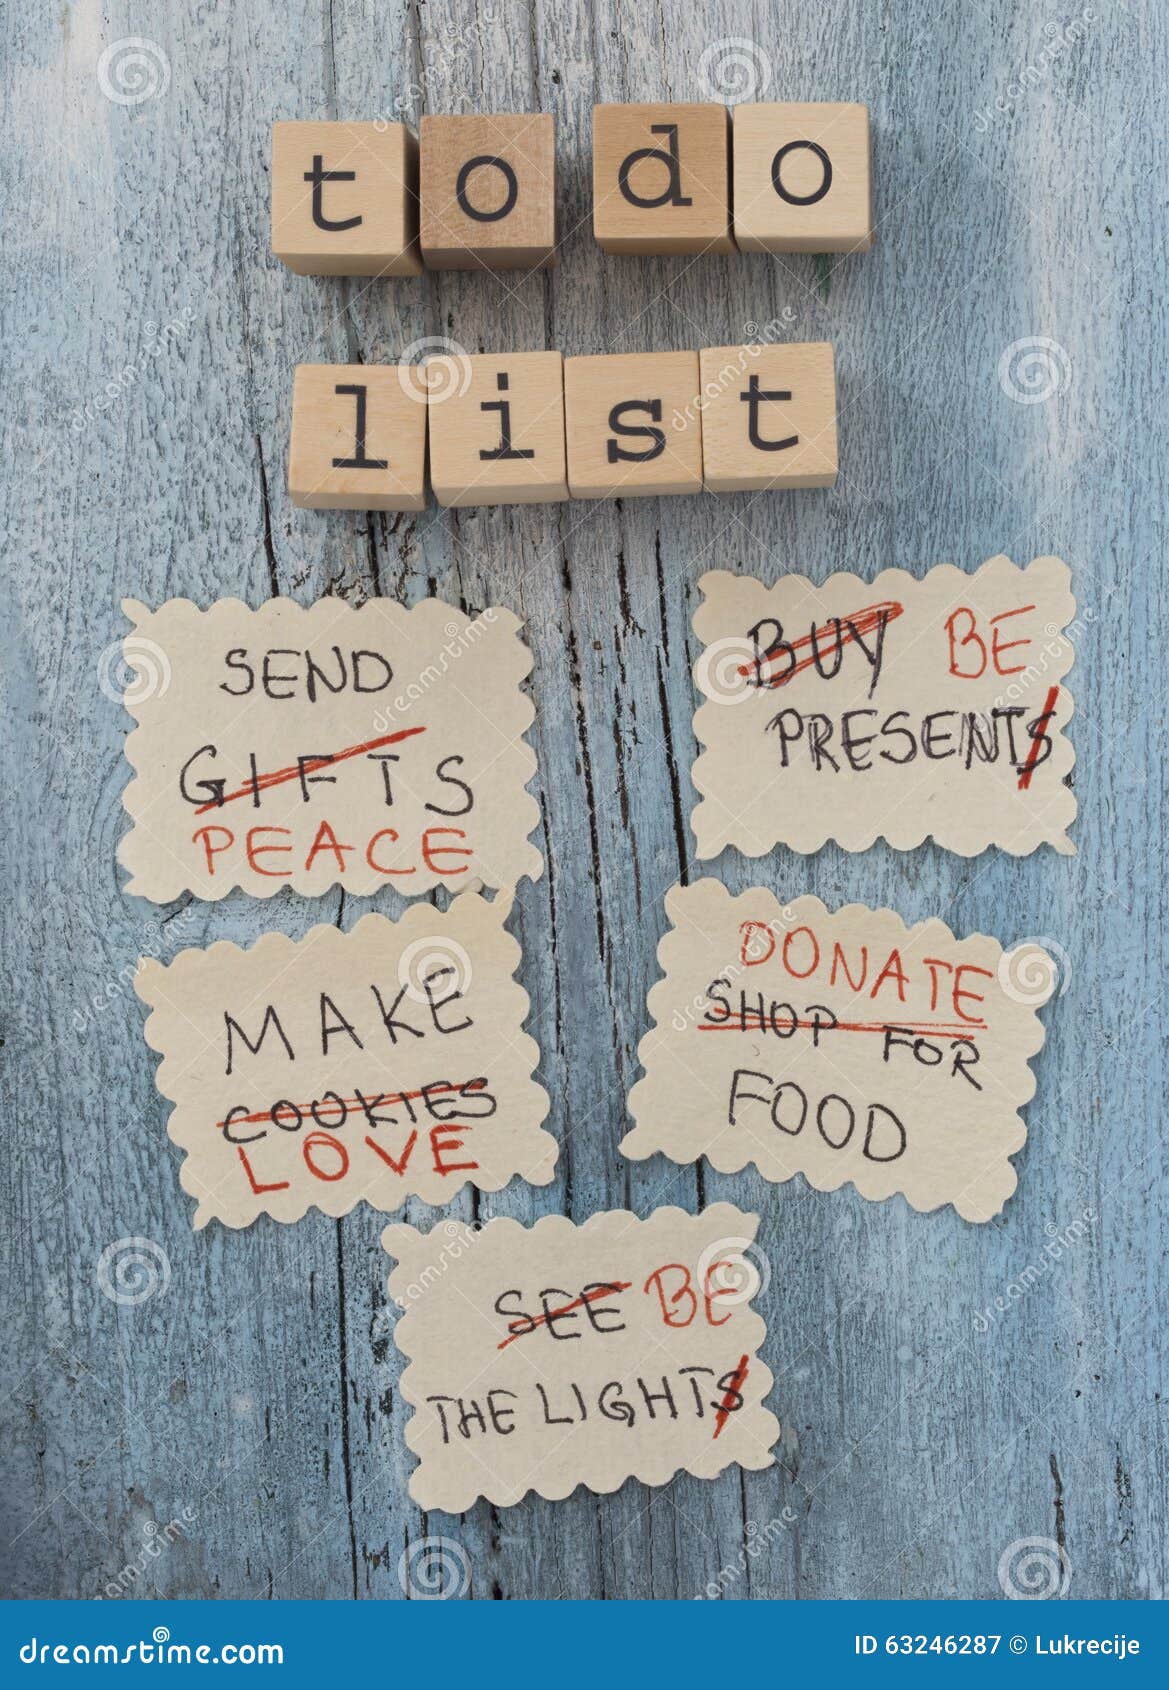 to do
list
SEND
GIFTS
PEACE
BUY BE
PRESENTS
MAKE
COOKIES
LOVE
DONATE
SHOP FOR
FOOD
SEE BE
THE LIGHTS
dreamstime.com
ID 63246287 © Lukrecije